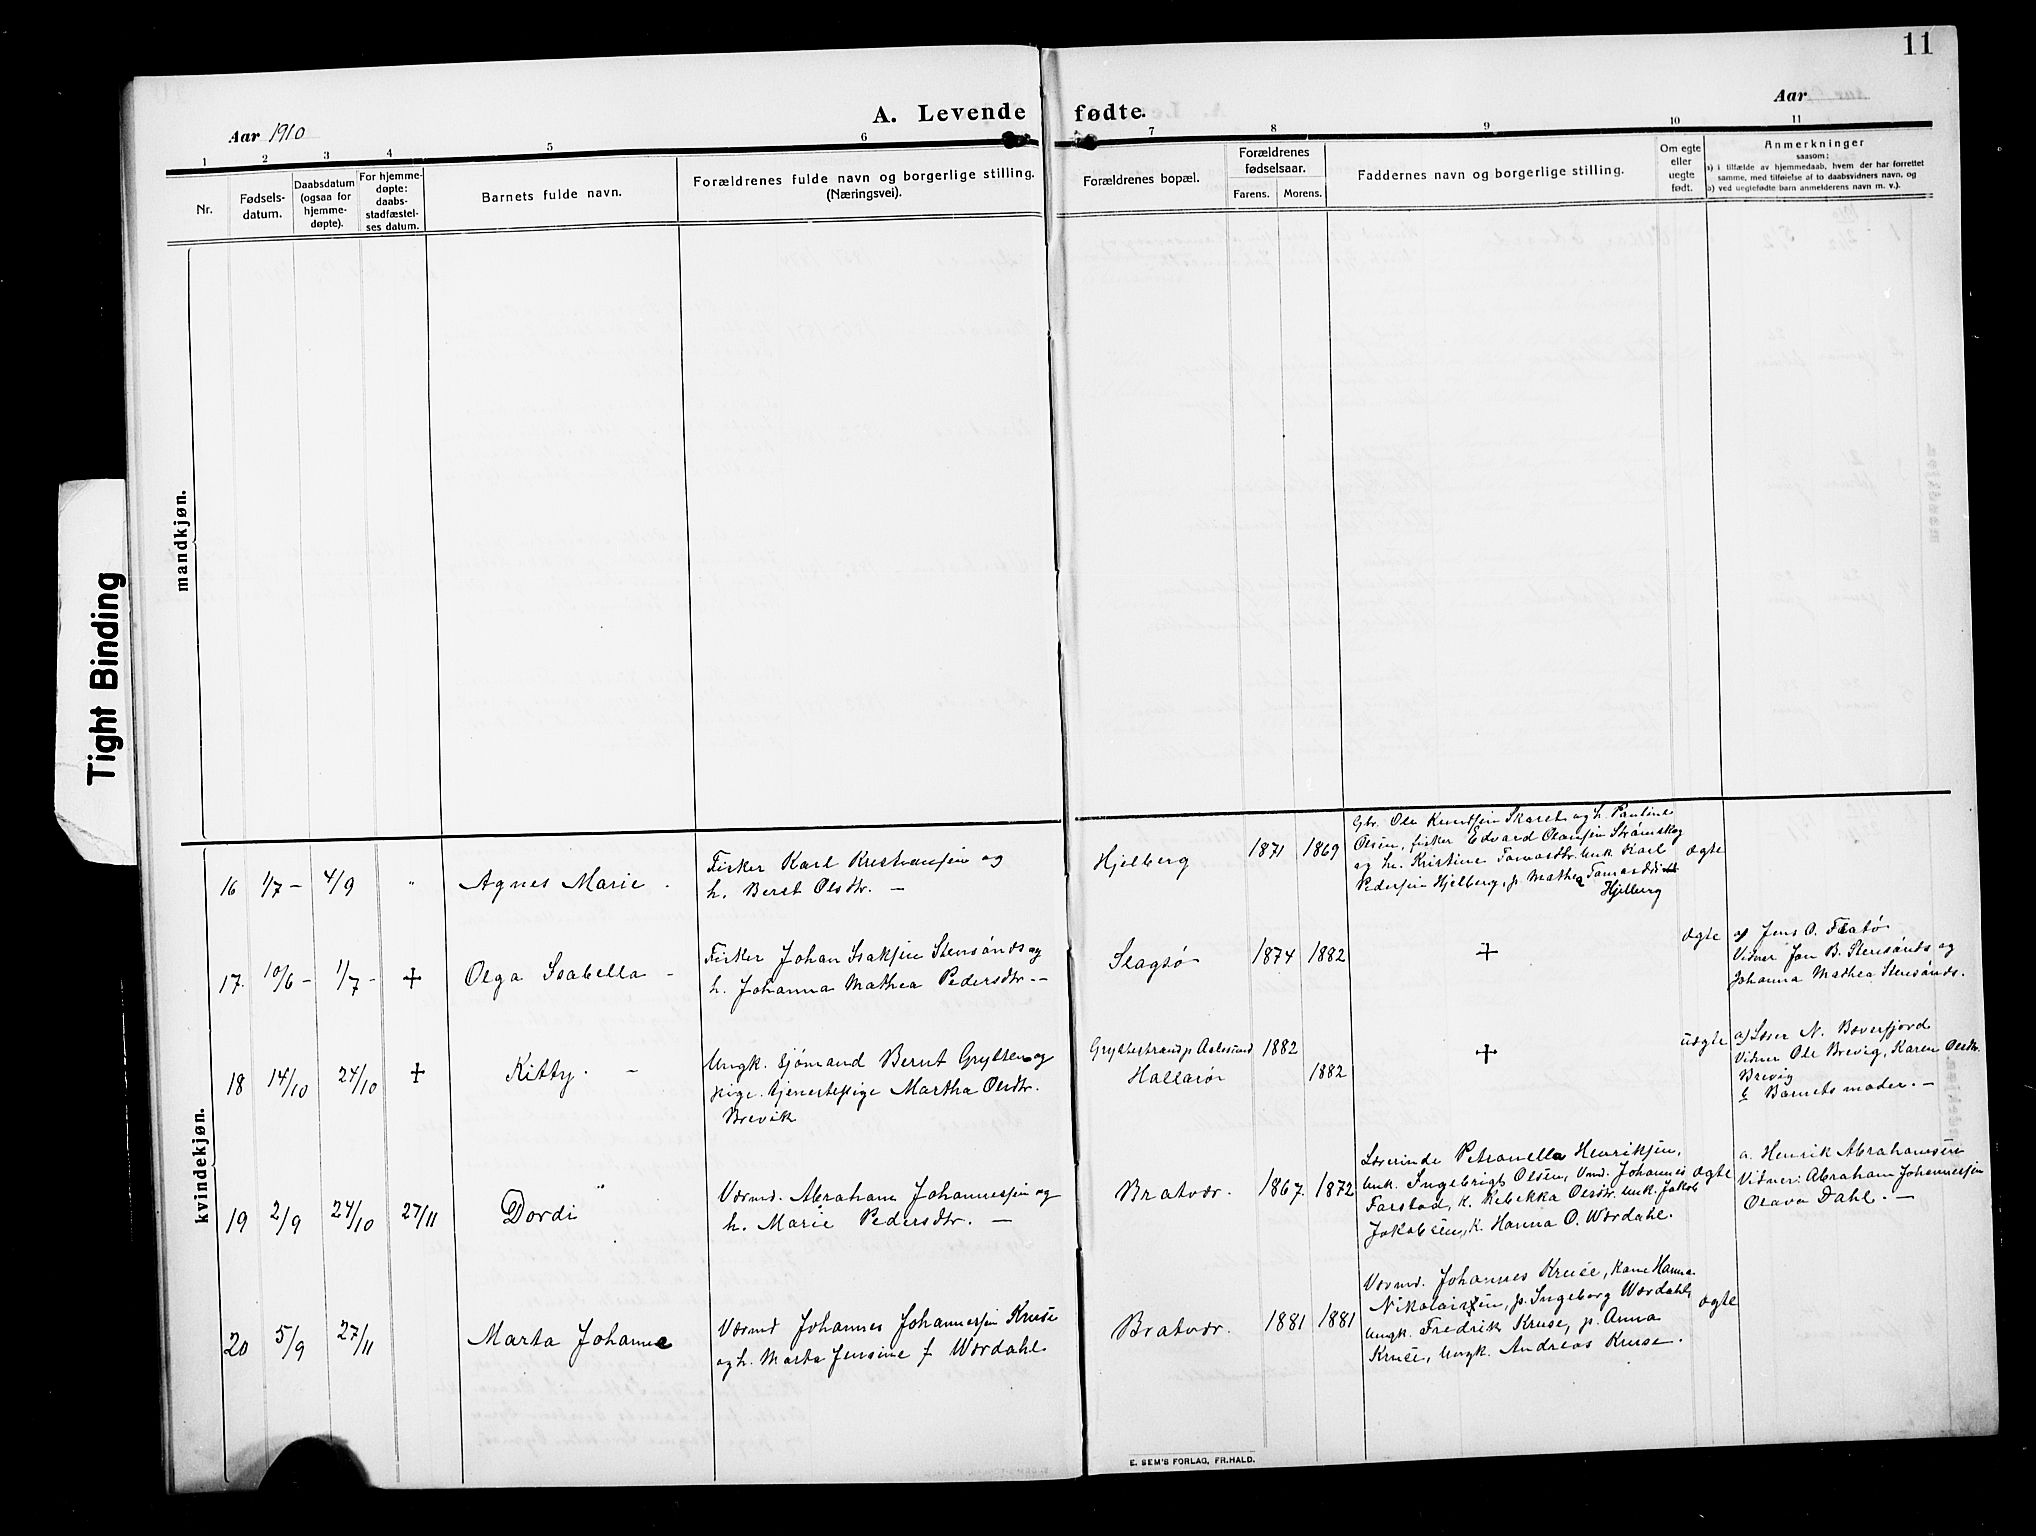 11
Aar 1910
A. Levende fødte.
Aar
1 2 3 4 5 6 7 8 9 10 11
Nr.
Fødsels-
datum.
Daabsdatum
(ogsaa for
hjemme-
døpte).
For hjemme-
døpte:
daabs-
stadfæstel-
ses datum.
Barnets fulde navn.
Forældrenes fulde navn og borgerlige stilling.
(Næringsvei).
Forældrenes bopæl.
Forældrenes
fødselsaar.
Farens. Morens.
Faddernes navn og borgerlige stilling.
Om egte
eller
uegte
født.
Anmerkninger
saasom:
a) i tilfælde av hjemmedaab, hvem der har forrettet
samme, med tilføielse af to daabsvidners navn, og
b) ved uegtefødte barn anmelderens navn m. v.).
mandkjøn.
kvindekjøn.
16 1/7 – 4/9 " Agnes Marie
Fisker Karl Kristiansen og
h. Beret Olsdtr. –
Hjelberg 1871 1869
Gbr. Ole Knutsen Skaret og h. Pauline
Olsen, fisker Edvard Olausen Strømskag
og h. Kristine Tomasdtr. Unk. Karl
Pedersen Hjelberg, p. Mathea Tomasdtr
Hjelberg
ægte
17. 10/6 – 1/7 – + Olga Isabella –
Fisker Johan Isaksen Stensønds og
h. Johanna Mathea Pedersdtr. –
Slagsø 1874 1882
+
ægte
a) Jens O. Flatø
Vidner Jon B. Stensønds og
Johanna Mathea Stensønds.
18 14/10 24/10 + Kitty. –
Ungk. sjømand Bernt Grytten og
pige. tjenestepige Martha Olsdtr.
Brevik
Gryttestrand p. Aalesund 1882
Hallarør 1882
+
uægte
a) Lsser N. Bøverfjord
Vidner Ole Brevig, Karen Olsdtr.
Brevig
b Barnets moder. –
19 2/9 24/10 27/11 Dordi
Værmd. Abraham Johannessen og
h. Marie Pedersdtr. –
Bratvær. 1867. 1872
Lærerinde Petronella Henriksen,
Unk. Ingebrigt Olsen, Vmd. Johannes
Farstad, k. Rebekka Olsdtr. Unk. Jakob
Jakobsen, k. Hanna O. Wærdahl.
ægte
a. Henrik Abrahamsen
Vidner: Abraham Johannessen
Olava Dahl. –
20 5/9 27/11 Marta Johanne
Værmd Johannes Johannessen Kruse
og h. Marta Jensine f Wærdahl.
Bratvær. 1881 1881
Værmd. Johannes Kruse, kone Hanna
Nikolaisen, p. Ingeborg Wærdahl,
Ungk. Fredrik Kruse, p. Anna
Kruse, Ungk. Andreas Kruse.
ægte
E. SEM'S FORLAG, FR.HALD.
Tight Binding